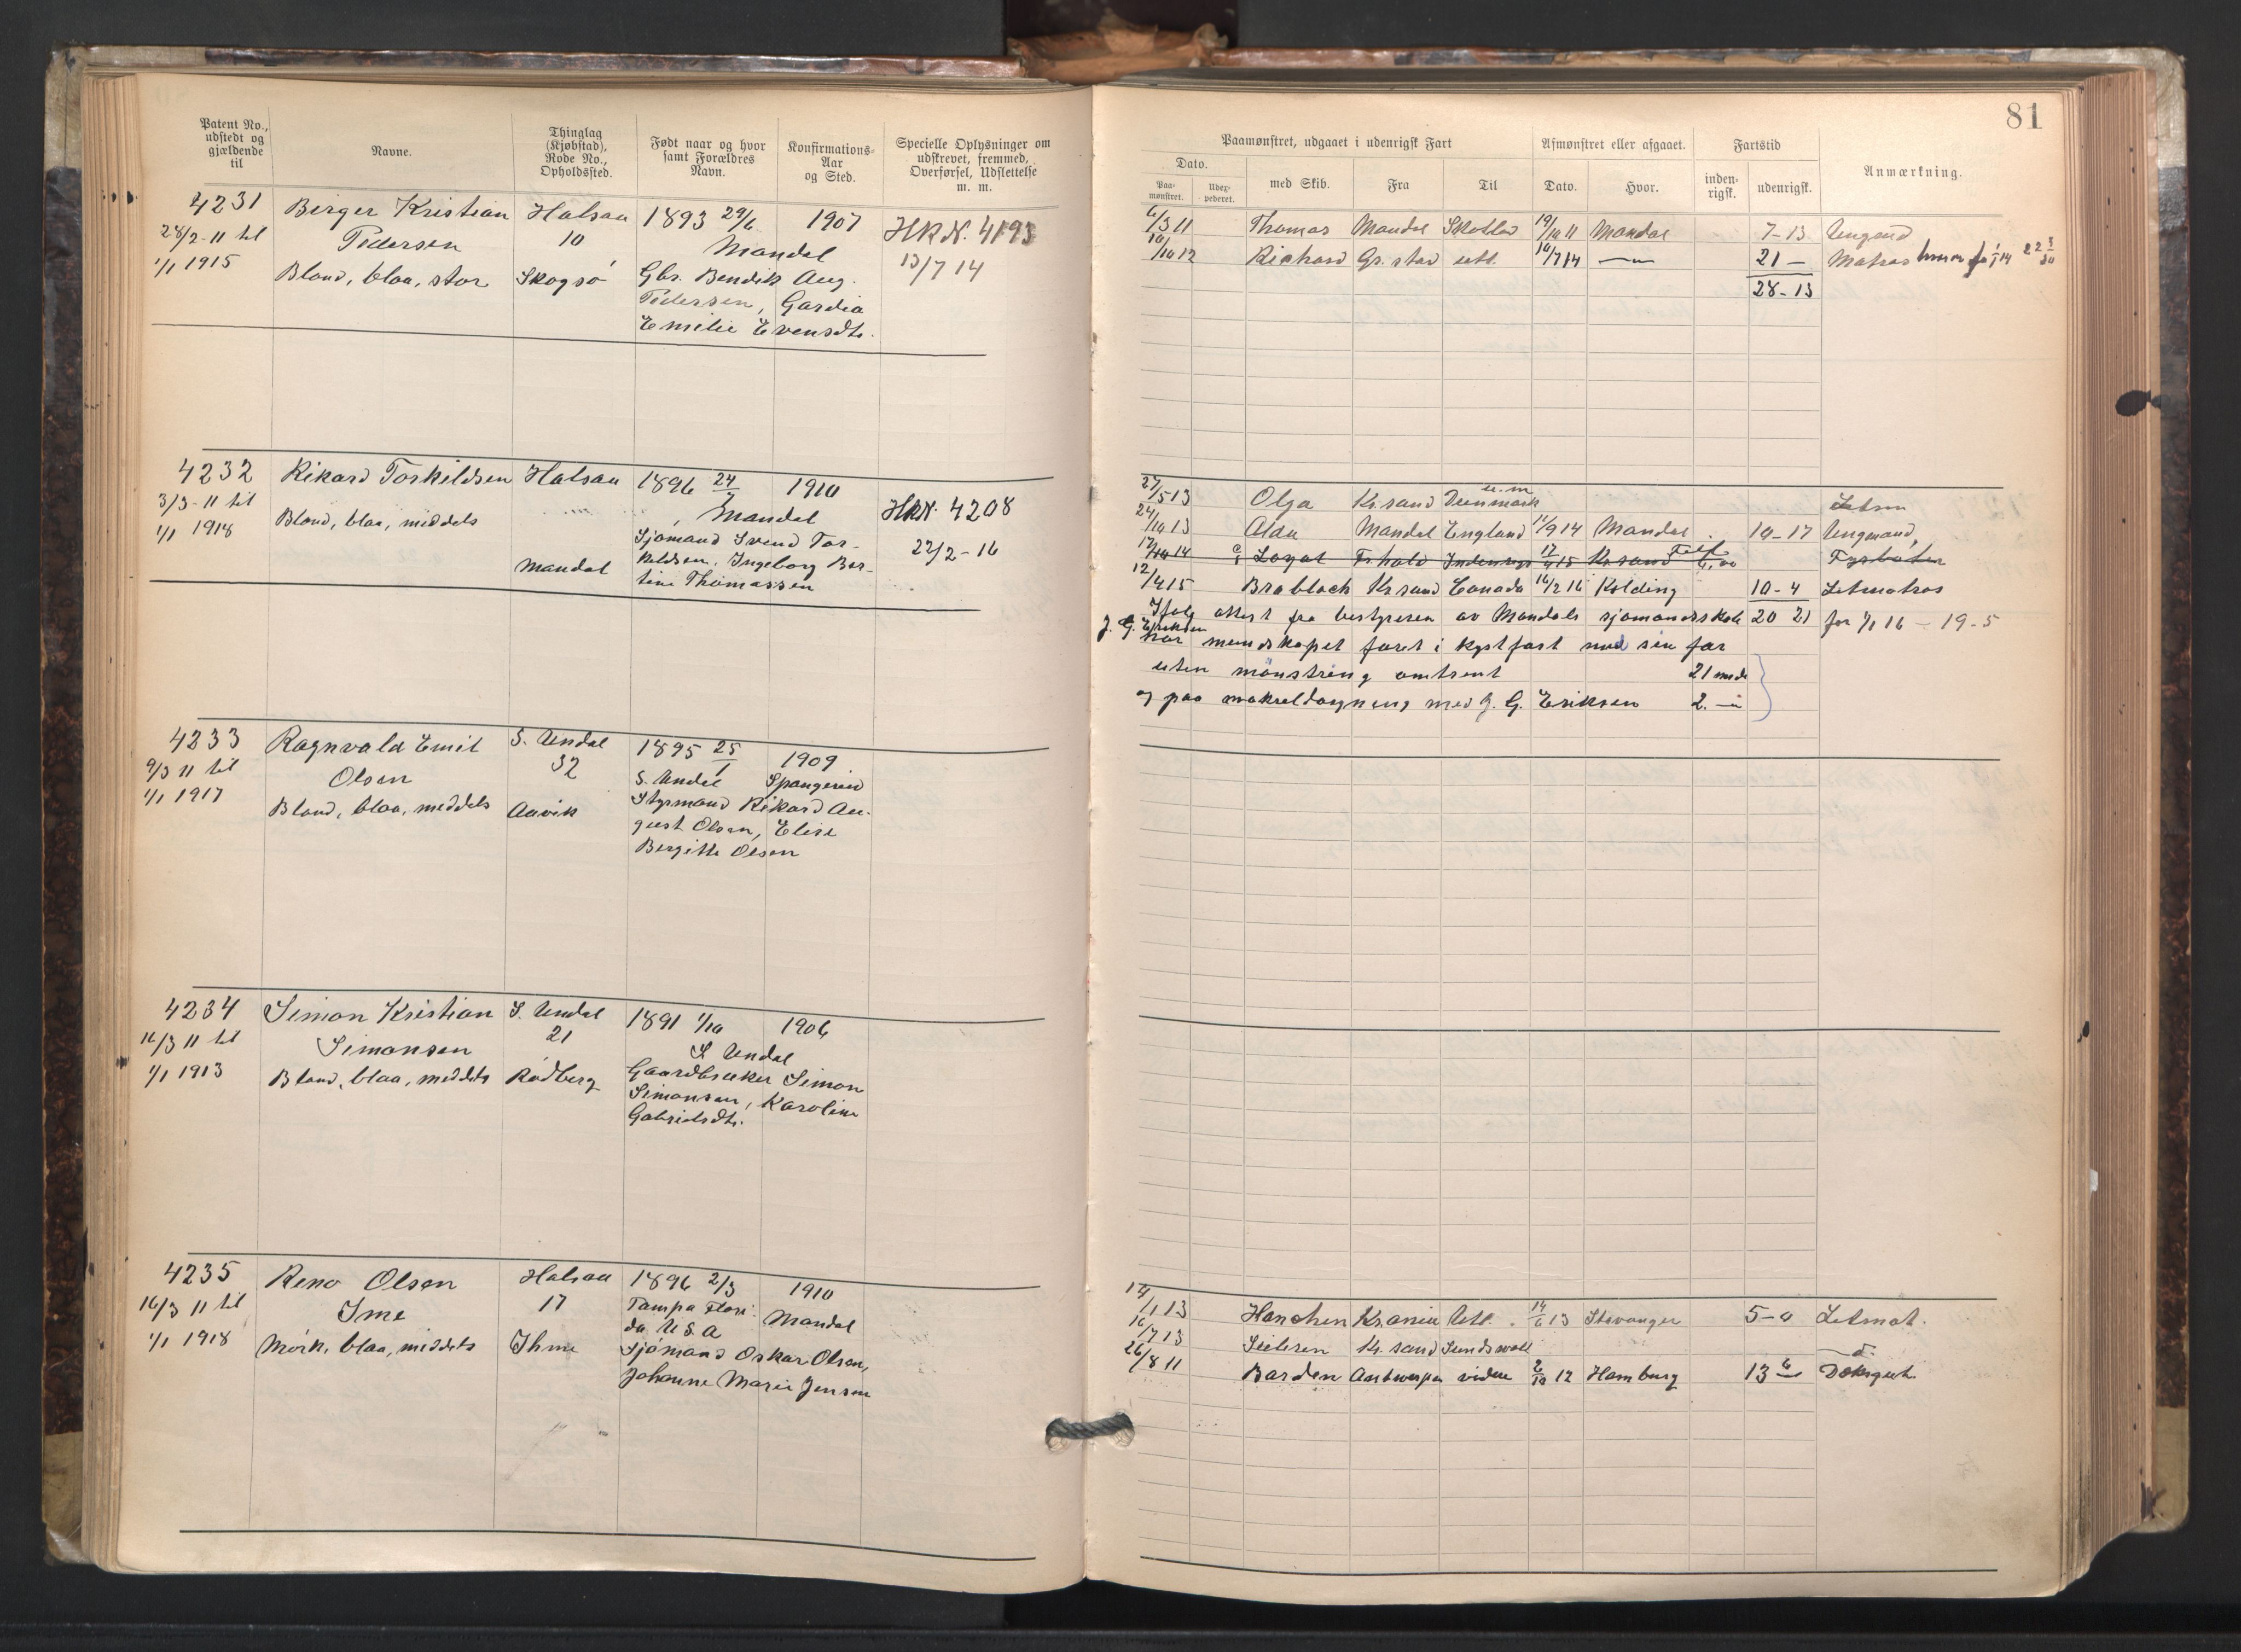 81
Patent No., udstedt og gjældende til
Navne.
Thinglag (Kjøbstad), Rode No., Opholdssted.
Født naar og hvor samt Forældres Navn.
Konfirmations-Aar og Sted.
Specielle Oplysninger om udskrevet, fremmed, Overførsel, Udslettelse m. m.
Paamønstret, udgaaet i udenrigsk Fart
Afmønstret eller afgaaet.
Fartstid
Anmærkning.
Dato.
Paa-mønstret.
med Skib.
Fra
Til
Dato.
Hvor.
inden-rigsk.
udenrigsk.
4231 Berger Kristian Halsaa 1893 29/6 1907 HRN. 4193
28/2-11 til Pedersen 10 Mandal 13/7 14
1/1 1915 Blond, blaa, stor Skogsø Gbr. Bendik Aug.
Pedersen, Gardia
Emilie Evensdtr.
6/3 11 Thomas Mandal Skotlad 19/10 11 Mandal 7-13 Ungmd
10/10 12 Richard Gr.stad utl. 10/7 14 — 21 — Matros
28-13
4232 Rikard Torkildsen Halsaa 1896 24/7 1910 HRN. 4208
3/3-11 til Blond, blaa, middels Mandal 22/2-16
1/1 1918 Sjømand Svend Tor-
Mandal kildsen, Ingeborg Ber-
tine Thomassen
27/5 13 Olga Kr.sand Danmark u.m
24/10 13 Alda Mandal England 11/9 14 Mandal 10-17 Ungmand,
Loyal Fr.hald Indenrigs 15 Kr.sand Fyrbøter
12/4 15 Brabloch Kr.sand Canada 16/2 16 Kolding 10-4 Letmatros
Ifølg attest fra bestyreren av Mandals sjømandsskole 20 21 før 1/1 16 - 19-5
J. G. Eriksen
har mandskapet faret i kystfart med sin far
uten mønstring omtrent 21 mdr
og paa makreldorgning med J. G. Eriksen 2. —
4233 Ragnvald Emil S. Undal 1895 25/1 1909
9/3 11 til Olsen 32 S. Undal Spangereid
1/1 1917 Blond, blaa, meddels Aavik Styrmand Rikard Au-
gust Olsen, Elise
Bergitte Olsen
4234 Simon Kristian S. Undal 1891 1/10 1906
16/3 11 til Simonsen 21 S. Undal
1/1 1913 Blond, blaa, meddels Rødberg Gaardbruker Simon
Simonsen, Karoline
Gabrielsdtr.
4235 Reno Olsen Halsaa 1896 2/3 1910
16/3 11 til Ime 17 Tampa Flori- Mandal
da U S A
1/1 1918 Mørk, blaa, middels Ihme Sjømand Oskar Olsen,
Johanne Marie Jensen
14/1 13 Hanchen Kr.ania Utl. 14/6 13 Stavanger 5-0 Letmat.
16/7 13 Kr.sand Sundsvall d.
26/8 11 Barden Antwerpen videre 2/10 12 Hamburg 13 6 Dæksgut.